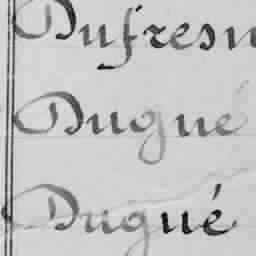 Dufresn
Dugué
Dugué